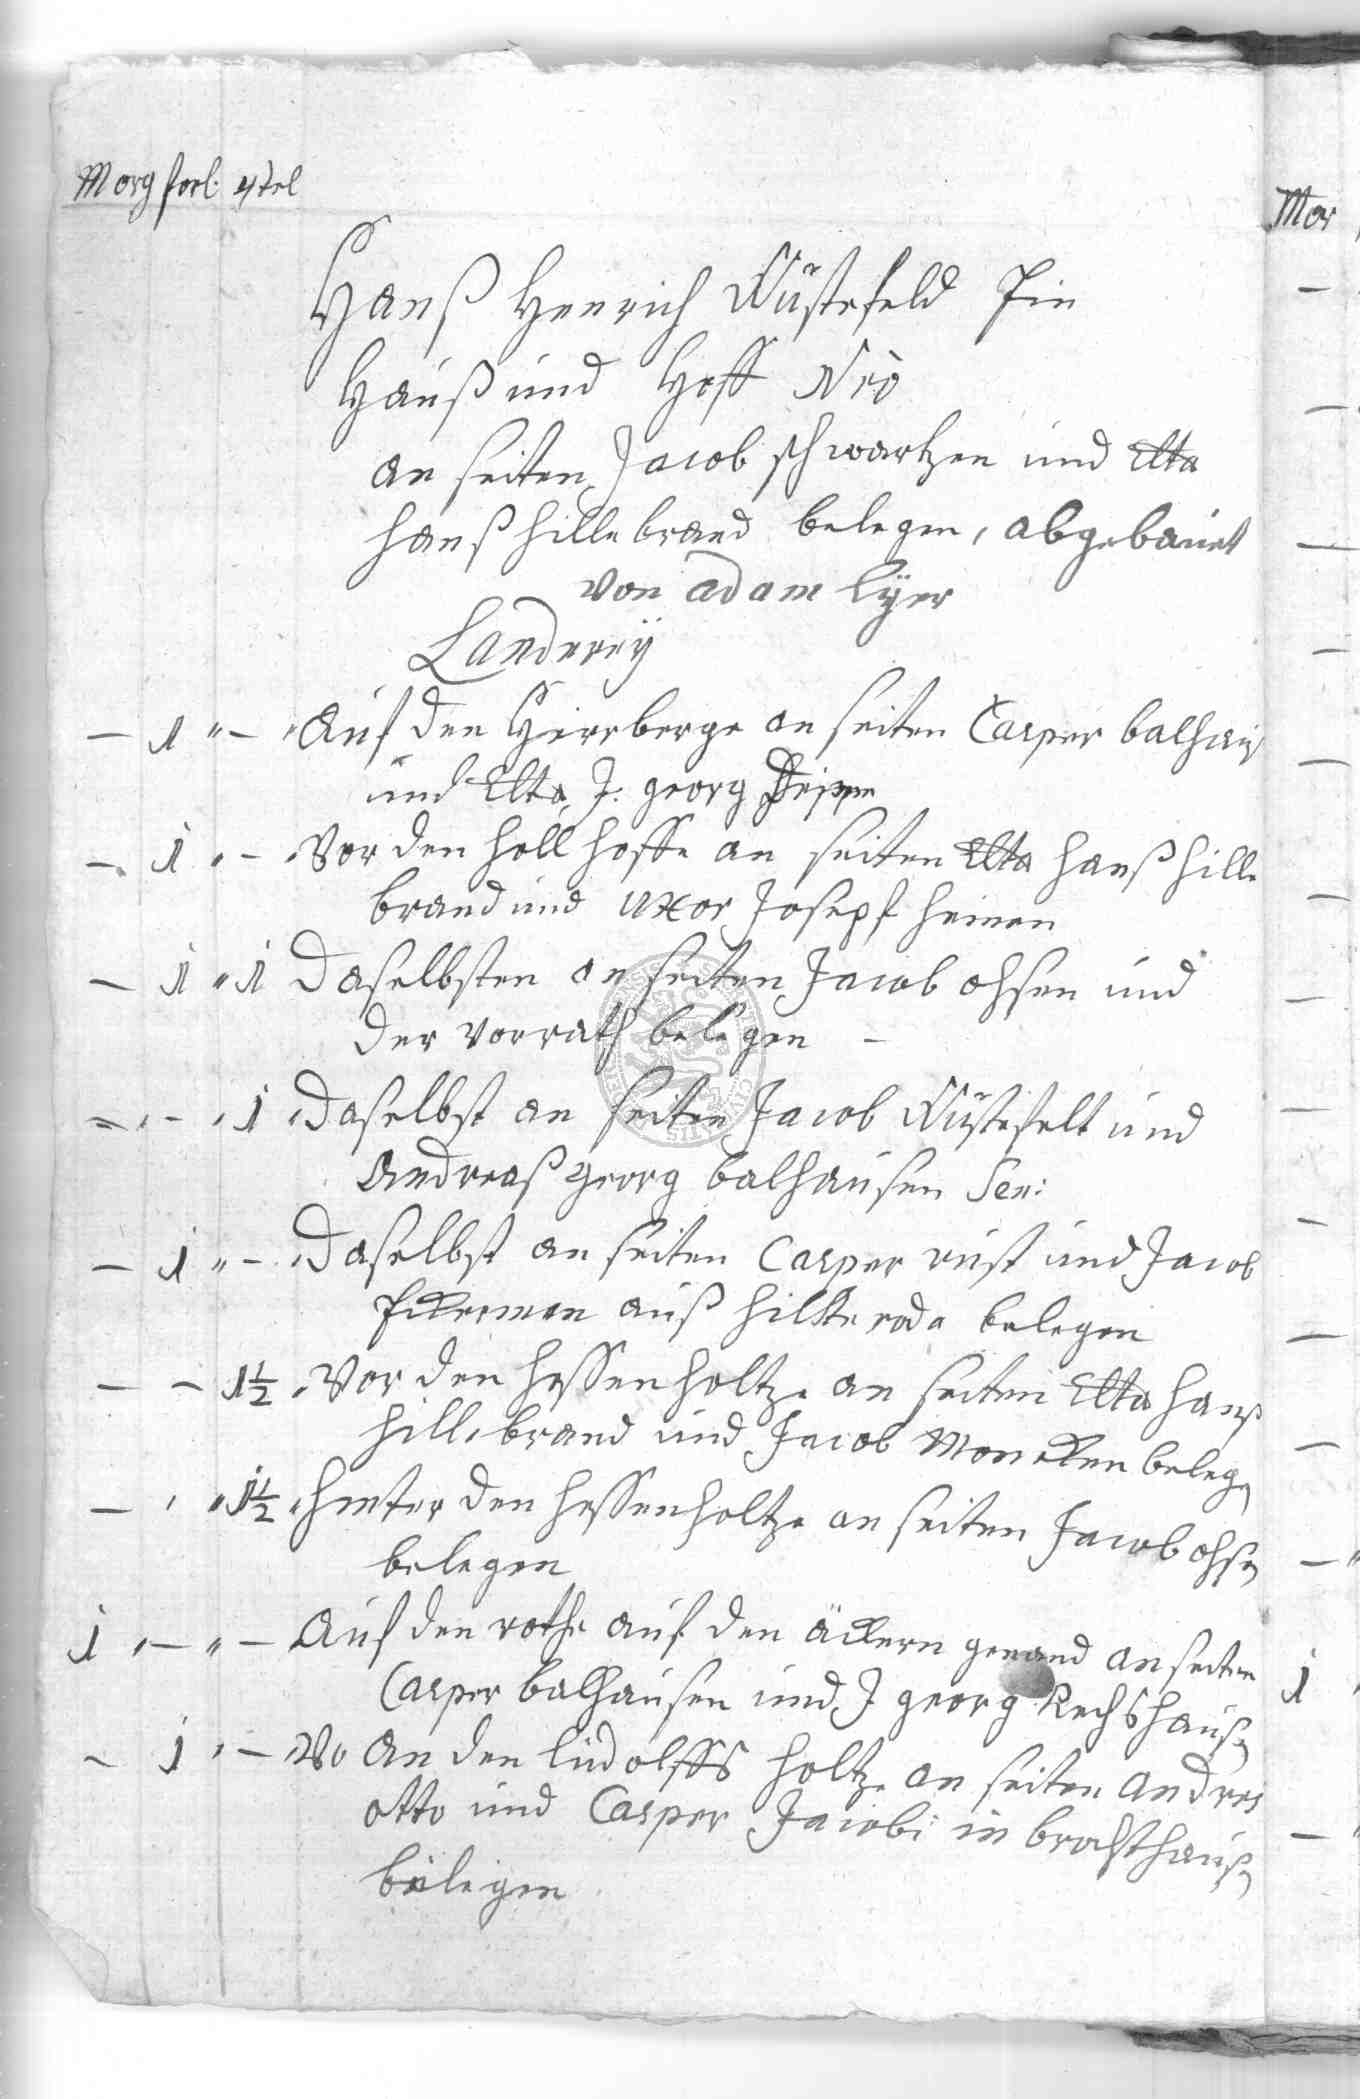 Morg forl. 4tel
Hanß Henrich Wüstefeld
Hauß und Hoff Nrō
an seiten Jacob schwartzen und
hanß hillebrand belegen, abgebauet
von adam
Länderey
– 1 " – " Auf den an seiten Casper balhauß
und J. georg
– 1 " – " Vor den höff hoffe an seiten hanß hille
brand und uxor Joseph heinen
– 1 " 1 Daselbsten an seiten Jacob ohsen und
der vorrath belegen –
– " – " 1 " Daselbst an seiten Jacob Wüstefelt und
Andreaß georg balhausen Sen:
– 1 " – " Daselbst an seiten Casper rust und Jacob
auß hilkeroda belegen
– – 1½ " Vor den hessenholtze an seiten hanß
hillebrand und Jacob Moncken belegen
– " " 1½ " hinter den hessenholtze an seiten Jacob ohsen
belegen
1 " – " – Auf den rothe auf den äckern genand an seiten
Casper balhausen und J georg Rechshausen
– 1 " – " Vo an den ludolffs holtze an seiten andres
otto und Casper Jacobi in brochthausen
belegen
Mor
1